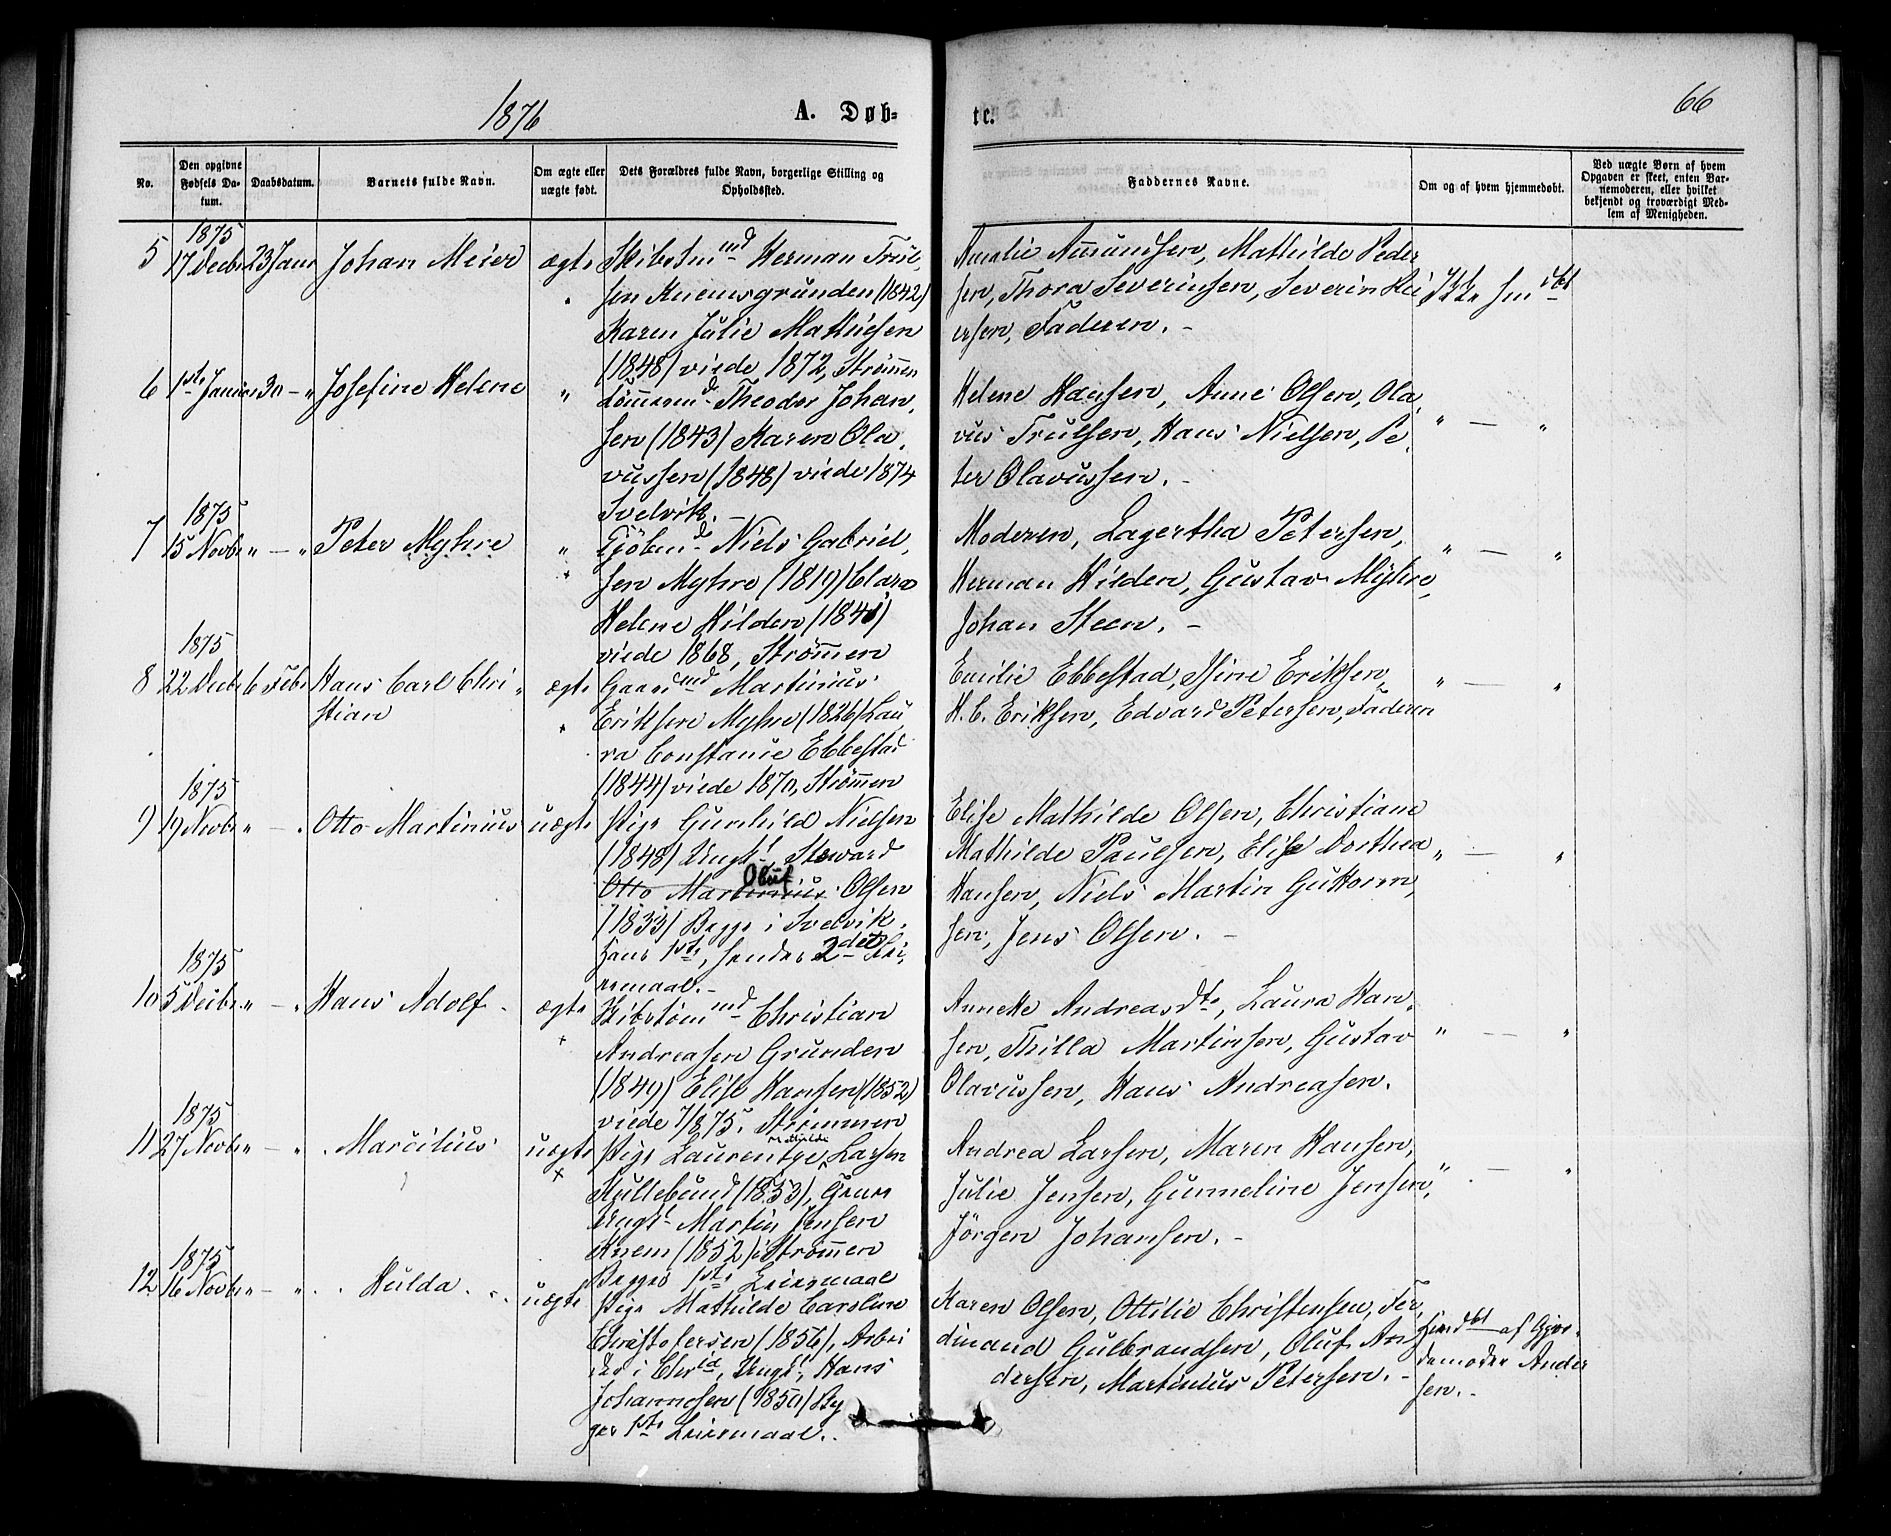 1876
A. Døb-
te.
66
No.
Den opgivne Fødsels Da-
tum.
Daabsdatum.
Barnets fulde Navn.
Om ægte eller
uægte født.
Dets Forældres fulde Navn, borgerlige Stilling og
Opholdssted.
Faddernes Navne.
Om og af hvem hjemmedøbt.
Ved uægte Børn af hvem
Opgaven er skeet, enten Bar-
nemoderen, eller hvilket
bekjendt og troværdigt Med-
lem af Menigheden.
1875
5 17 Decbr 23 Janr Johan Meier ægte
Skibstmmd Herman Trul,
sen Knemsgrunden (1842)
Karen Julie Mathisen
(1848) viede 1872, Strømmen
Amalie Amundsen, Mathilde Peder
sen, Thora Severinsen, Severin Hei
ersen, Faderen. -
Ikke hmdbt
6 1ste Januar 30 - " Josefine Helene "
Tømmermd Theodor Johan,
sen (1843) Karen Ola,
vussen (1848) viede 1874
Svelvik. -
Helene Hansen, Anne Olsen, Ola,
vus Trulsen, Hans Nielsen, Pe,
ter Olavussen. -
" - "
1875
7 15 Novbr " - " Peter Myhre "
Niels Gabriel,
sen Myhre (1819) Clara
Helene Hilden (1841)
viede 1868, Strømmen
Moderen, Lagertha Petersen,
Herman Hilden, Gustav Myhre,
Johan Steen. -
" - "
1875
8 22 Decbr 6 Febr Hans Carl Chri,
stian
ægte
Gaardmd Martinius
Eriksen Myhre (1826) Lau
ra Constance Ebbestad
(1844) viede 1870, Strømmen
Emilie Ebbestad, Sine Eriksen,
H. C. Eriksen, Edvard Petersen, Faderen
" - "
1875
9 19 Novbr " - " Otto Martinius uægte
Pige Gunhild Nielsen
(1848) Ungk. Steward
Otto Martinius Oluf Olsen
(1833) Begge i Svelvik.
Hans 1ste, hendes 2det Lei,
ermaal. -
Elise Mathilde Olsen, Christiane
Mathilde Paulsen, Elise Dorthea
Hansen, Niels Martin Guttorm,
sen, Jens Olsen. -
" - "
1875
10 5 Decbr " - " Hans Adolf - ægte
Skibstømmd Christian
Andreasen Grunden
(1849) Elise Hansen (1852)
viede 7/8 75. Strømmen
Annette Andreasdtr, Laura Han,
sen, Thilla Martinsen, Gustav
Olavussen, Hans Andreasen.
" - "
1875
11 27 Novbr " - " Marcilius uægte
Pige Laurentze Mathilde Larsen
Kullebund (1853),
Ungk. Martin Jensen
Knem (1852) i Strømmen
Begges 1ste Leiermaal
Andrea Larsen, Maren Hansen,
Julie Jensen, Gunneline Jensen,
Jørgen Johansen. -
" - "
1875
12 16 Novbr " - " Hulda uægte
Pige Mathilde Caroline
Christofersen (1856), Arbei
der i Chria, Ungk. Hans
Johannesen (1850) Beg
ges 1ste Leiermaal.
Karen Olsen, Ottilie Christensen, Fer,
dinand Gulbrandsen, Oluf An
dersen, Martinius Petersen. -
Hjmdbt af Gjor-
demoder Ander
sen. -